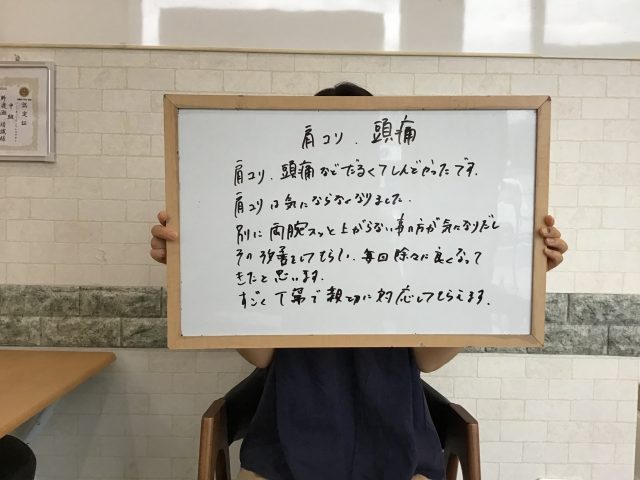 認定証
中級
肩コリ、頭痛
肩コリ、頭痛などだるくてしんどかったです.
肩コリは気にならなくなりました.
別に両腕スッと上がらない事の方が気になりだし
その改善をしてもらい、毎回除々に良くなって
きたと思います.
すごく丁寧で親切に対応してもらえます.